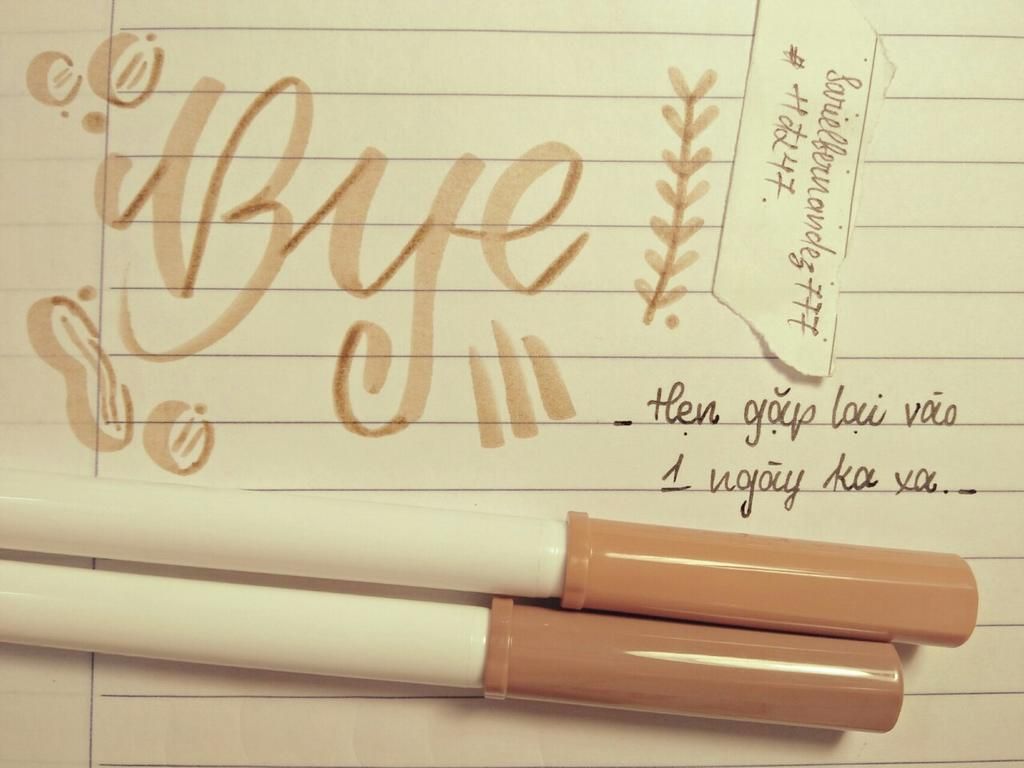 Bye
# Htt 47.
_ Hẹn gặp lại vào
1 ngày ka xa._